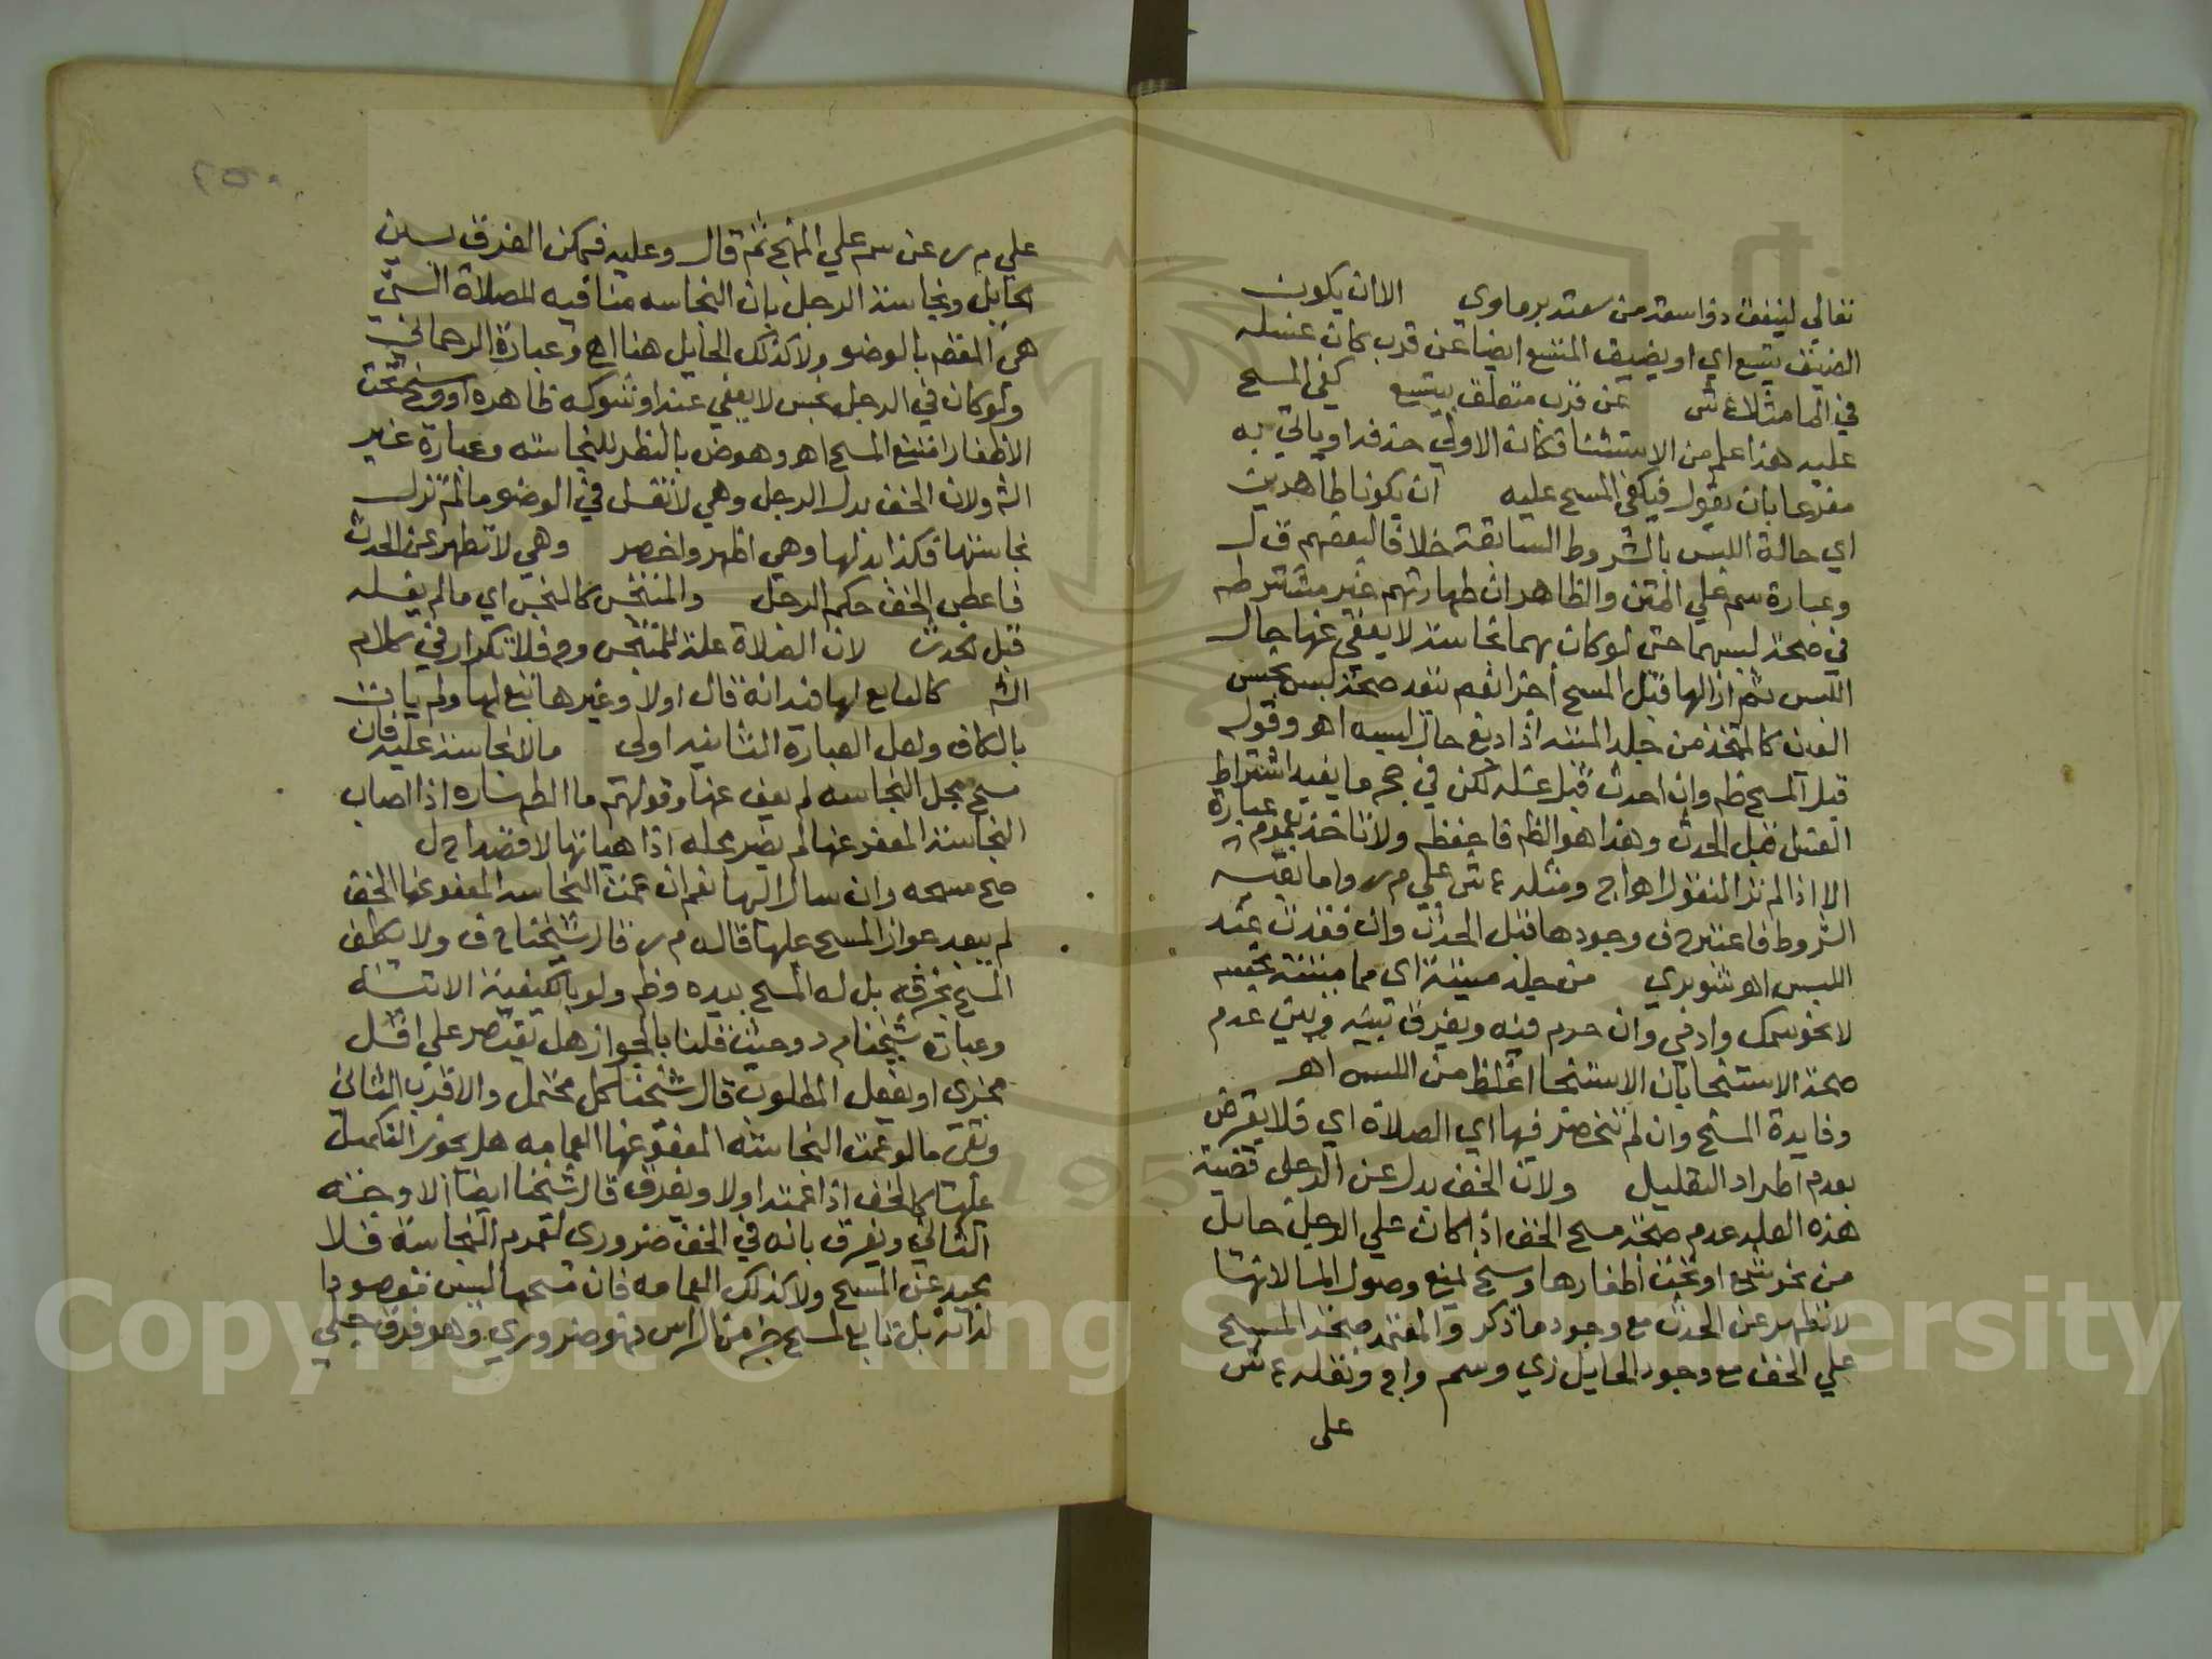 تعالى لينفق ذو سعة من سعته برماوي الا ان يكون
الضيق يتسع اي او يضيق المتسع ايضا عن قرب كان غسله
في الما مثلا ع ش عن قرب متعلق بيتسع كفي المسح
عليه هذا علم من الاستثنا فكان الاولي حذفه او ياتي به
مفرعا بان يقول فيكفي المسح عليه ان يكونا طاهرين
اي حالة اللبس بالشروط السابقة خلافا لبعضهم ق ل
وعبارة سم علي المتن والظاهر ان طهارتهم غير مشترطه
في صحة لبسهما حتى لو كان بهما نجاسة لا يعفي عنها حال
اللبس ثم ازالها قبل المسح اجزا نعم تبعد صحة لبس نجس
العين كالمتخذ من جلد الميتة اذا دبغ حال لبسه اهـ وقوله
قبل المسح ظ وان احدث قبل غسله لكن في حج ما يفيد اشتراط
الغسل قبل الحدث وهذا هو الظ فاحفظه ولا تاخذ بعموم عبارة
الا اذا لم تر النقول اهـ اج ومثله ع ش علي م ر واما بقية
الشروط فاعتبر ح ف وجودها قبل الحدث وان فقدت عند
اللبس اهـ شوبري من جلد ميتة اي مما ميتته نجسه
لا نحو سمك وادمي وان حرم فيه ويفرق بينه وبين عدم
صحة الاستنجا بان الاستنجا اغلظ من اللبس اهـ
وفايدة المسح وان لم تنحصر فيها اي الصلاة اي فلا يعرض
بعدم اطراد التعليل ولان الخف بدل عن الرجل قضية
هذه العلة عدم صحة مسح الخف اذا كان علي الرجل حايل
من نحو شمع او تحت اظفارها وسخ يمنع وصول الما لانها
لا تطهر عن الحدث مع وجود ما ذكر والمعتمد صحة المسح
علي الخف مع وجود الحايل زي وسم واج ونقله ع ش
على
علي م ر عن سم علي المنهج ثم قال وعليه فيمكن الفرق بين
الحايل ونجاسة الرجل بان النجاسه منافيه للصلاة التي
هي المقصد بالوضو ولا كذلك الحايل هنا اهـ وعبارة الرحماني
ولو كان في الرجل نجس لا يعفي عنه او شوكه ظاهره او وسخ تحت
الاظفار امتنع المسح اهـ وهو ض بالنظر للنجاسه وعبارة غير
الش ولان الخف بدل الرجل وهي لا تغسل في الوضو ما لم تزل
نجاستها فكذا بدلها وهي اظهر واخصر وهي لا تطهر عن الحدث
فاعطي الخف حكم الرجل والمتنجس كالنجس اي ما لم يغسله
قبل الحدث لان الصلاة علة للمتنجس وح فلا تكرار في كلام
الش كالتابع لها فيه انه قال اولا وغيرها تبع لها ولم يات
بالكاف ولعل العبارة الثانيه اولى ما لا نجاسة عليه فان
مسح محل النجاسه لم يعف عنها وقولهم ما الطهاره اذا اصاب
النجاسة المعفو عنها لم يضر محله اذا اصابها لا قصدا ح ل
صح مسحه وان سال اليها نعم ان عمت النجاسه المعفو عنها الخف
لم يبعد جواز المسح عليها قاله م ر قال شيخنا ح ف ولا يكلف
المسح بخرقه بل له المسح بيده وظ ولو بالكيفية الاتيه
وعبارة شيخنا م د وحيث قلنا بالجواز هل يقتصر علي اقل
مجزي او يفعل المطلوب قال شيخنا كل محتمل والاقرب الثاني
وبقي ما لو عمت النجاسه المعفو عنها العمامه هل يجوز التكميل
عليها كالخف اذا عمته او لا ويفرق قال شيخنا ايضا الاوجه
الثاني ويفرق بانه في الخف ضروري لعموم النجاسة فلا
محيد عن المسح ولا كذلك العمامه فان مسحها ليس مقصودا
لذاته بل تابع لمسح جز من الراس وهو ضروري وهو فرق جلي
Copyright © King Saud University
1957